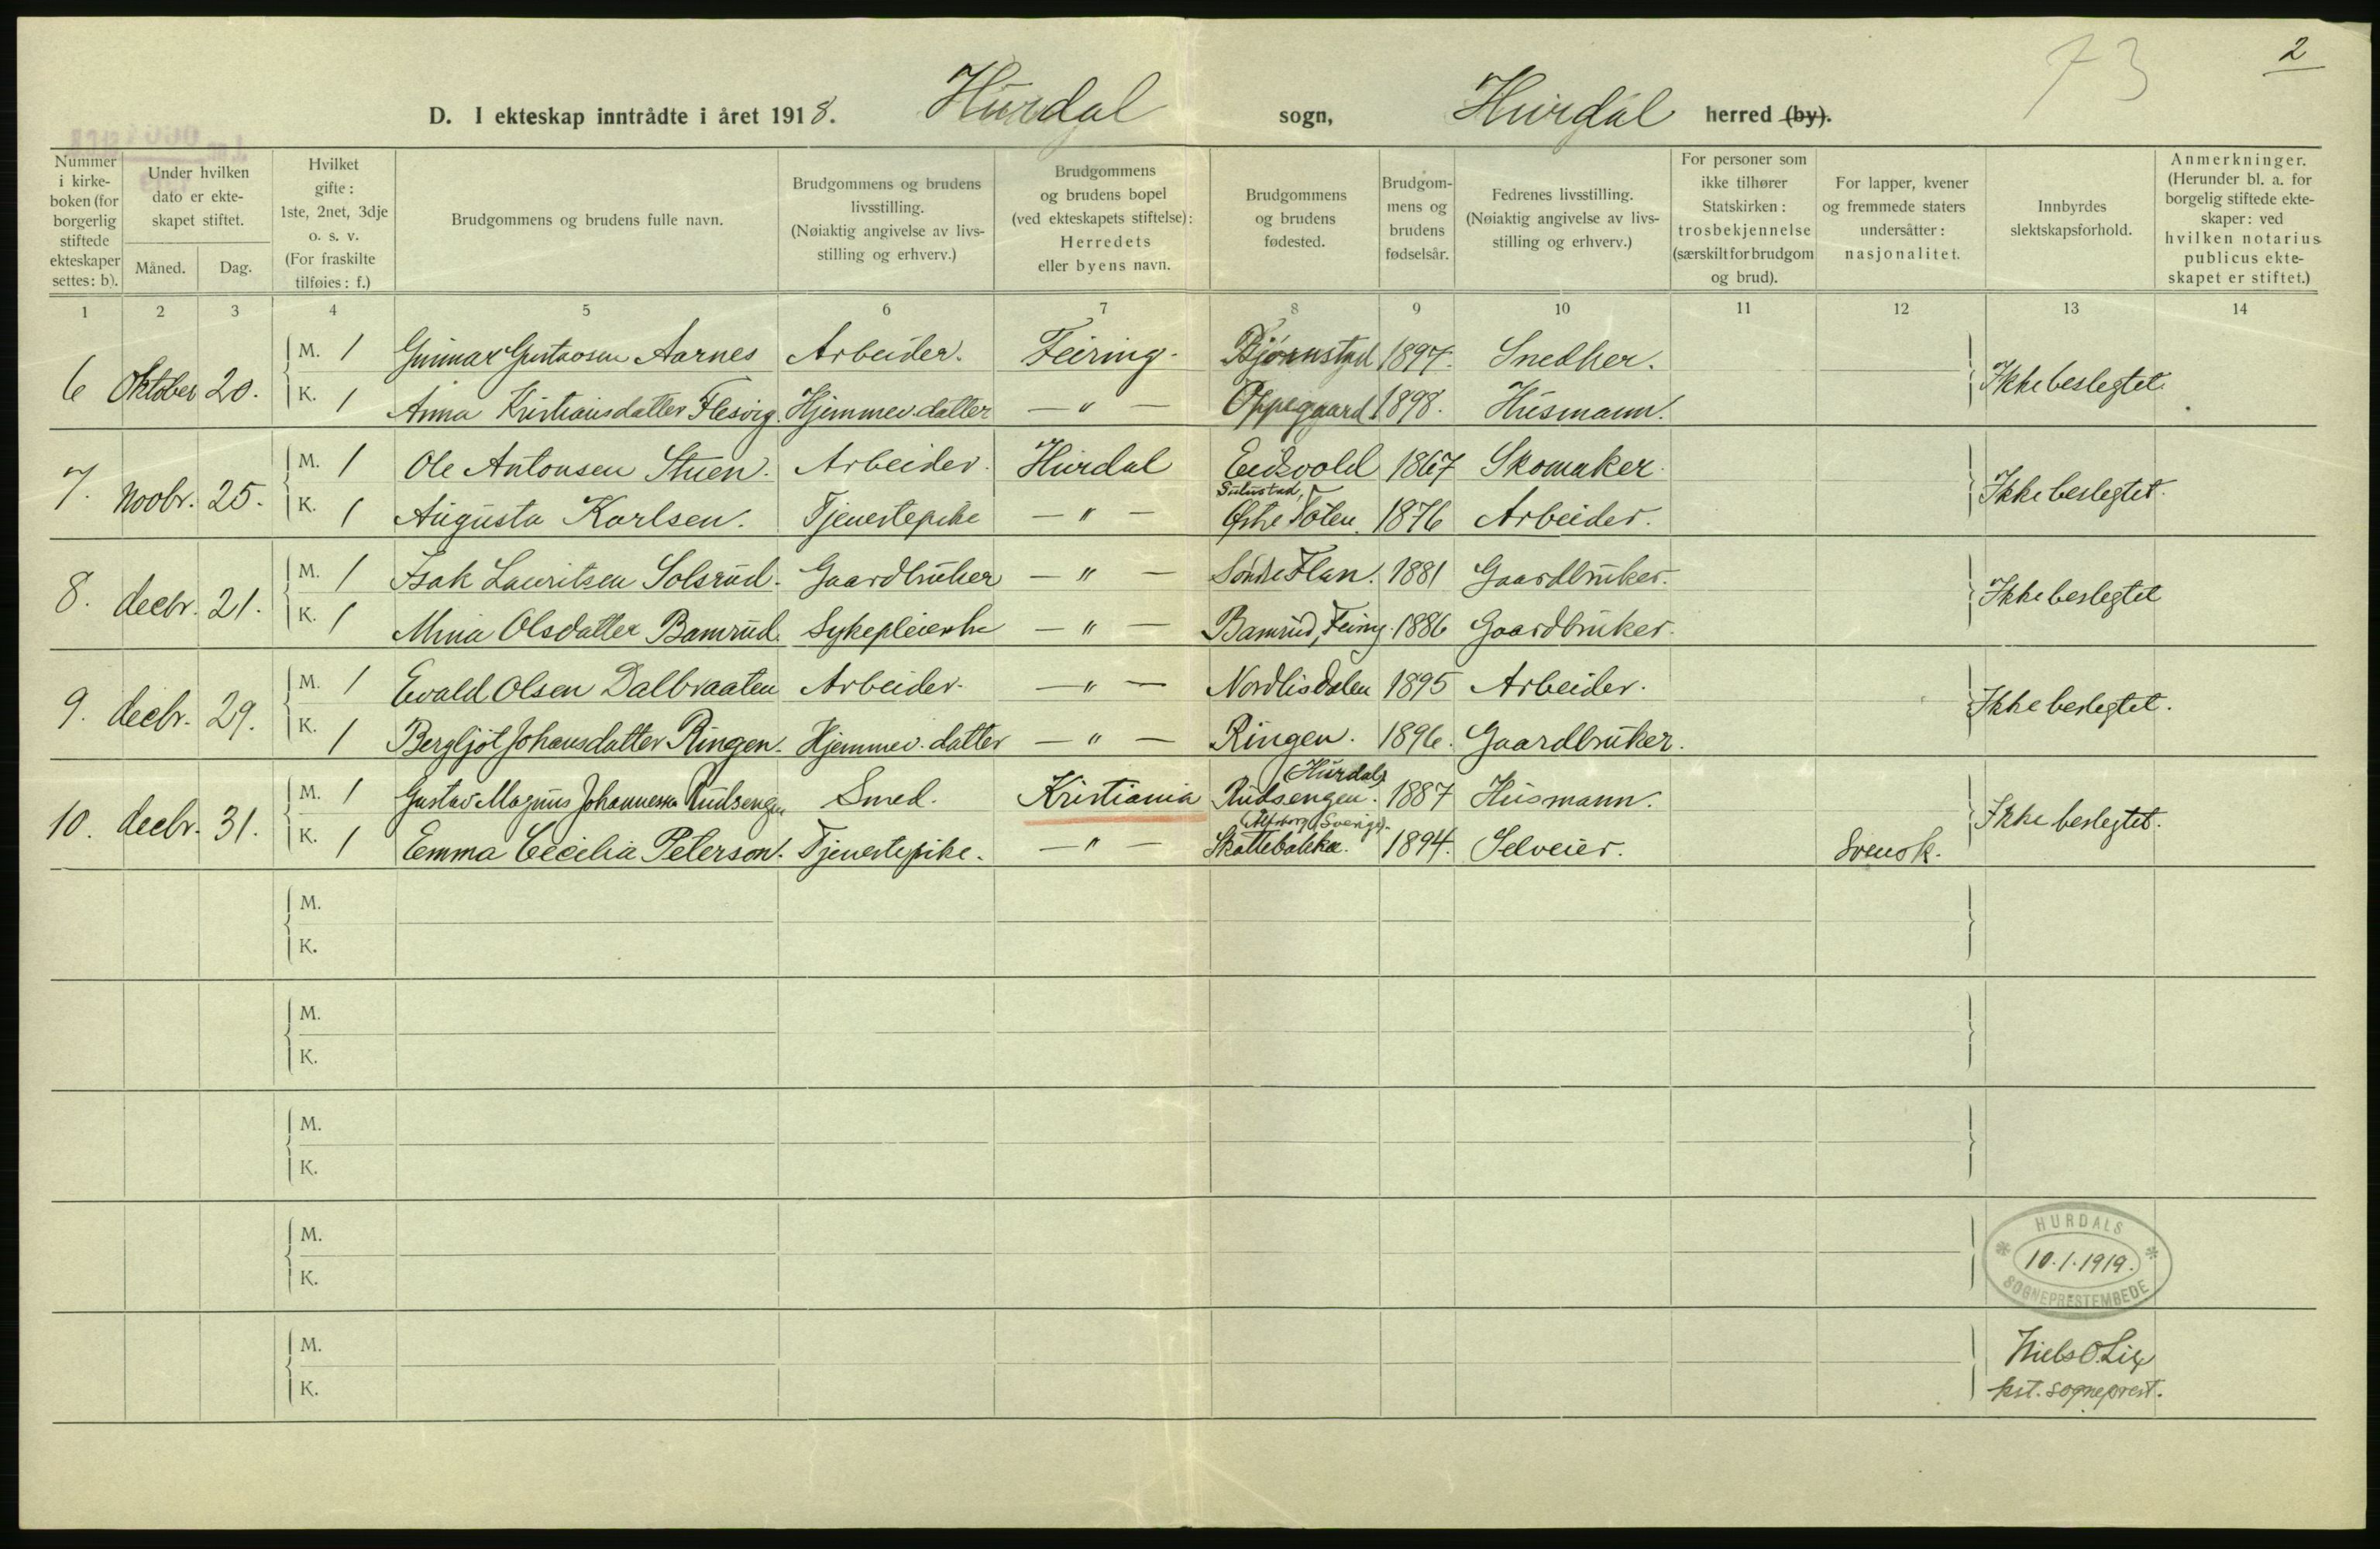 73
2
D. I ekteskap inntrådte i året 1918. Hurdal sogn, Hurdal herred (by).
Nummer i kirkeboken (for borgerlig stiftede ekteskaper settes: b).
Under hvilken dato er ekteskapet stiftet.
Måned. Dag.
Hvilket gifte: 1ste, 2net, 3dje o. s. v. (For fraskilte tilføies: f.)
Brudgommens og brudens fulle navn.
Brudgommens og brudens livsstilling. (Nøiaktig angivelse av livsstilling og erhverv.)
Brudgommens og brudens bopel (ved ekteskapets stiftelse): Herredets eller byens navn.
Brudgommens og brudens fødested.
Brudgommens og brudens fødselsår.
Fedrenes livsstilling. (Nøiaktig angivelse av livsstilling og erhverv.)
For personer som ikke tilhører Statskirken: trosbekjennelse (særskilt for brudgom og brud).
For lapper, kvener og fremmede staters undersåtter: nasjonalitet.
Innbyrdes slektskapsforhold.
Anmerkninger. (Herunder bl. a. for borgelig stiftede ekteskaper: ved hvilken notarius publicus ekteskapet er stiftet.)
1 2 3 4 5 6 7 8 9 10 11 12 13 14
6 Oktober 20. M. 1 Gunnar Gustavsen Aarnes Arbeider. Feiring. Bjørnstad 1897. Snedker. Ikke beslegtet.
K. 1 Anna Kristiansdatter Flesvig. Hjemmev. datter — " — Oppegaard 1898. Husmann.
7. Novbr. 25. M. 1 Ole Antonsen Stuen. Arbeider. Hurdal Eidsvold 1867 Skomaker. Ikke beslegtet.
K. 1 Augusta Karlsen. Tjenestepike — " — Østre Toten. 1876 Arbeider.
8. decbr. 21. M. 1 Isak Lauritsen Solsrud. Gaardbruker — " — Søndre Flan. 1881 Gaardbruker. Ikke beslegtet
K. 1 Mina Olsdatter Bamrud. Sykepleierske — " — Bamrud, Feiring. 1886 Gaardbruker.
9. decbr. 29. M. 1 Evald Olsen Dalbraaten Arbeider. — " — Nordlisdalen 1895 Arbeider. Ikke beslegtet.
K. 1 Bergljot Johansdatter Ringen. Hjemmev. datter — " — Ringen. 1896. Gaardbruker.
(Hurdal)
10. decbr. 31. M. 1 Gustav Magnus Johannessen Rudsengen Smed. Kristiania Rudsengen. 1887 Husmann. Ikke beslegtet.
(Elfsborg, Sverige).
K. 1 Emma Cecilia Peterson. Tjenestepike. — " — Skattebakka. 1894. Selveier. Svensk.
M.
K.
M.
K.
M.
K.
M.
K.
M.
K.
HURDALS
10.1.1919.
SOGNEPRESTEMBEDE
Niels O. Lie
kst. sogneprest.